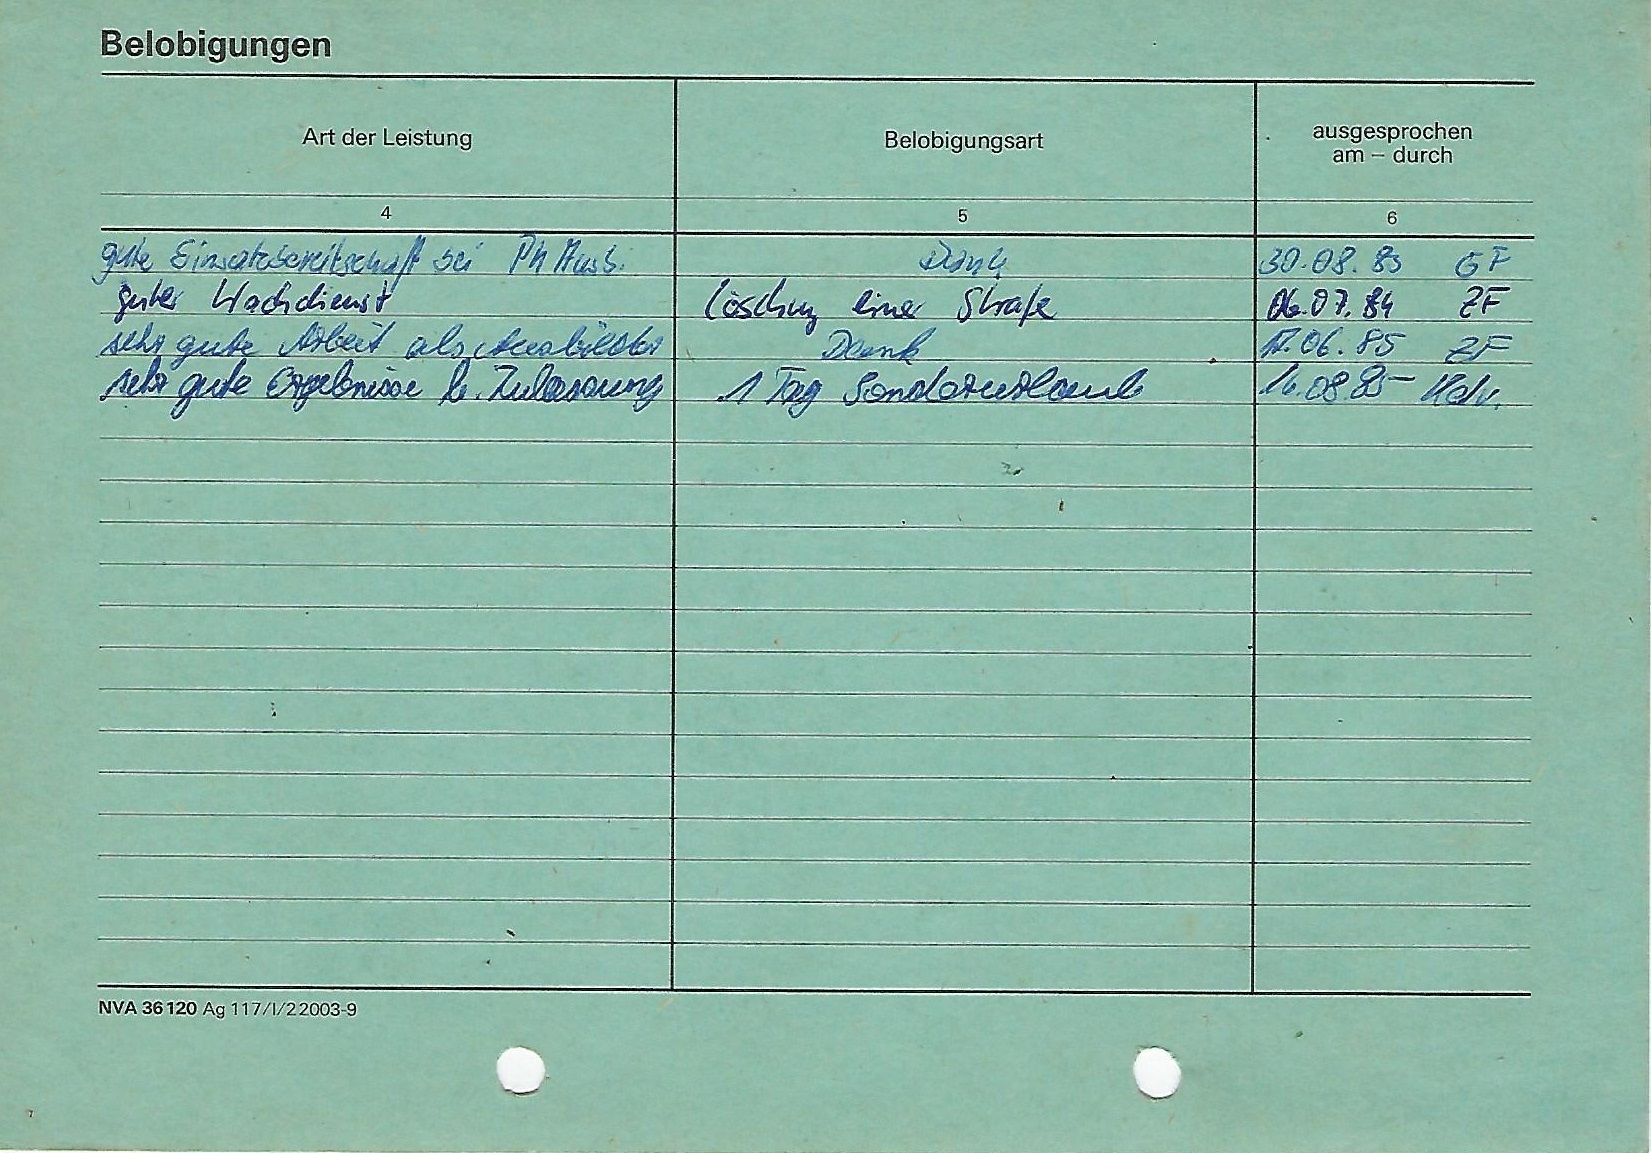 Belobigungen
Art der Leistung
Belobigungsart
ausgesprochen
am – durch
4
5
6
gute Einsatzbereitschaft bei Ausb. Dank 30.08.83 GF
guter Wachdienst Löschung einer Strafe 06.07.84 ZF
sehr gute Arbeit als Ausbilder Dank 06.85 ZF
sehr gute Ergebnisse b. Zulassung 1 Tag Sonderurlaub 16.08.85 Kdr.
NVA 36 120 Ag 117/I/2 2003-9